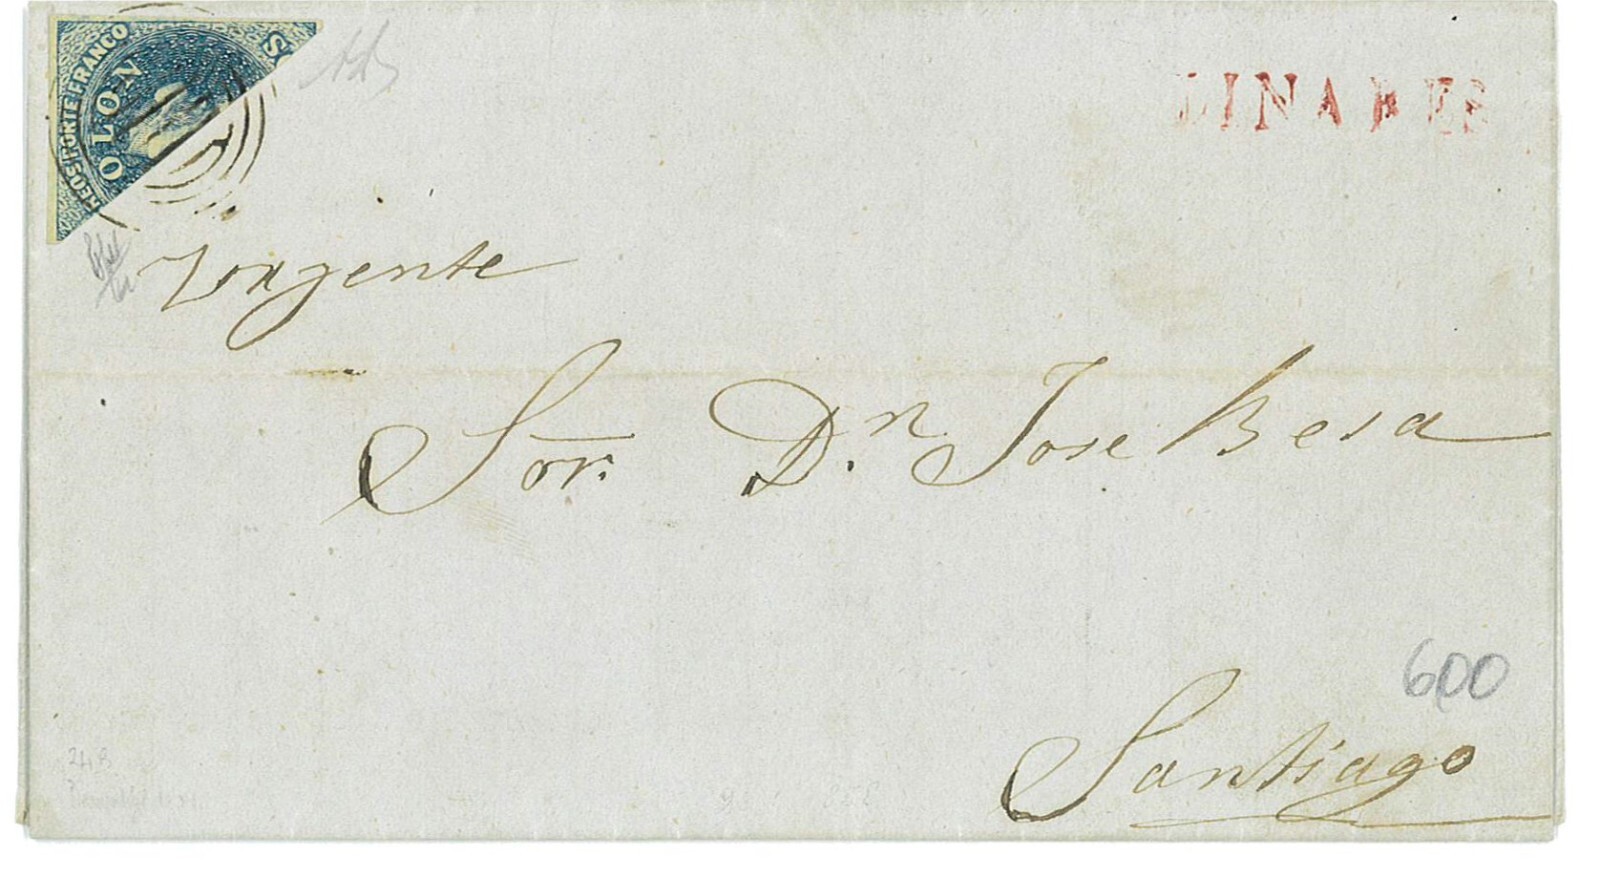 REOS PORTE FRANCO
OLON
LINARES
Vrxgente
Sor. D.n Jose Besa
600
Santiago
248